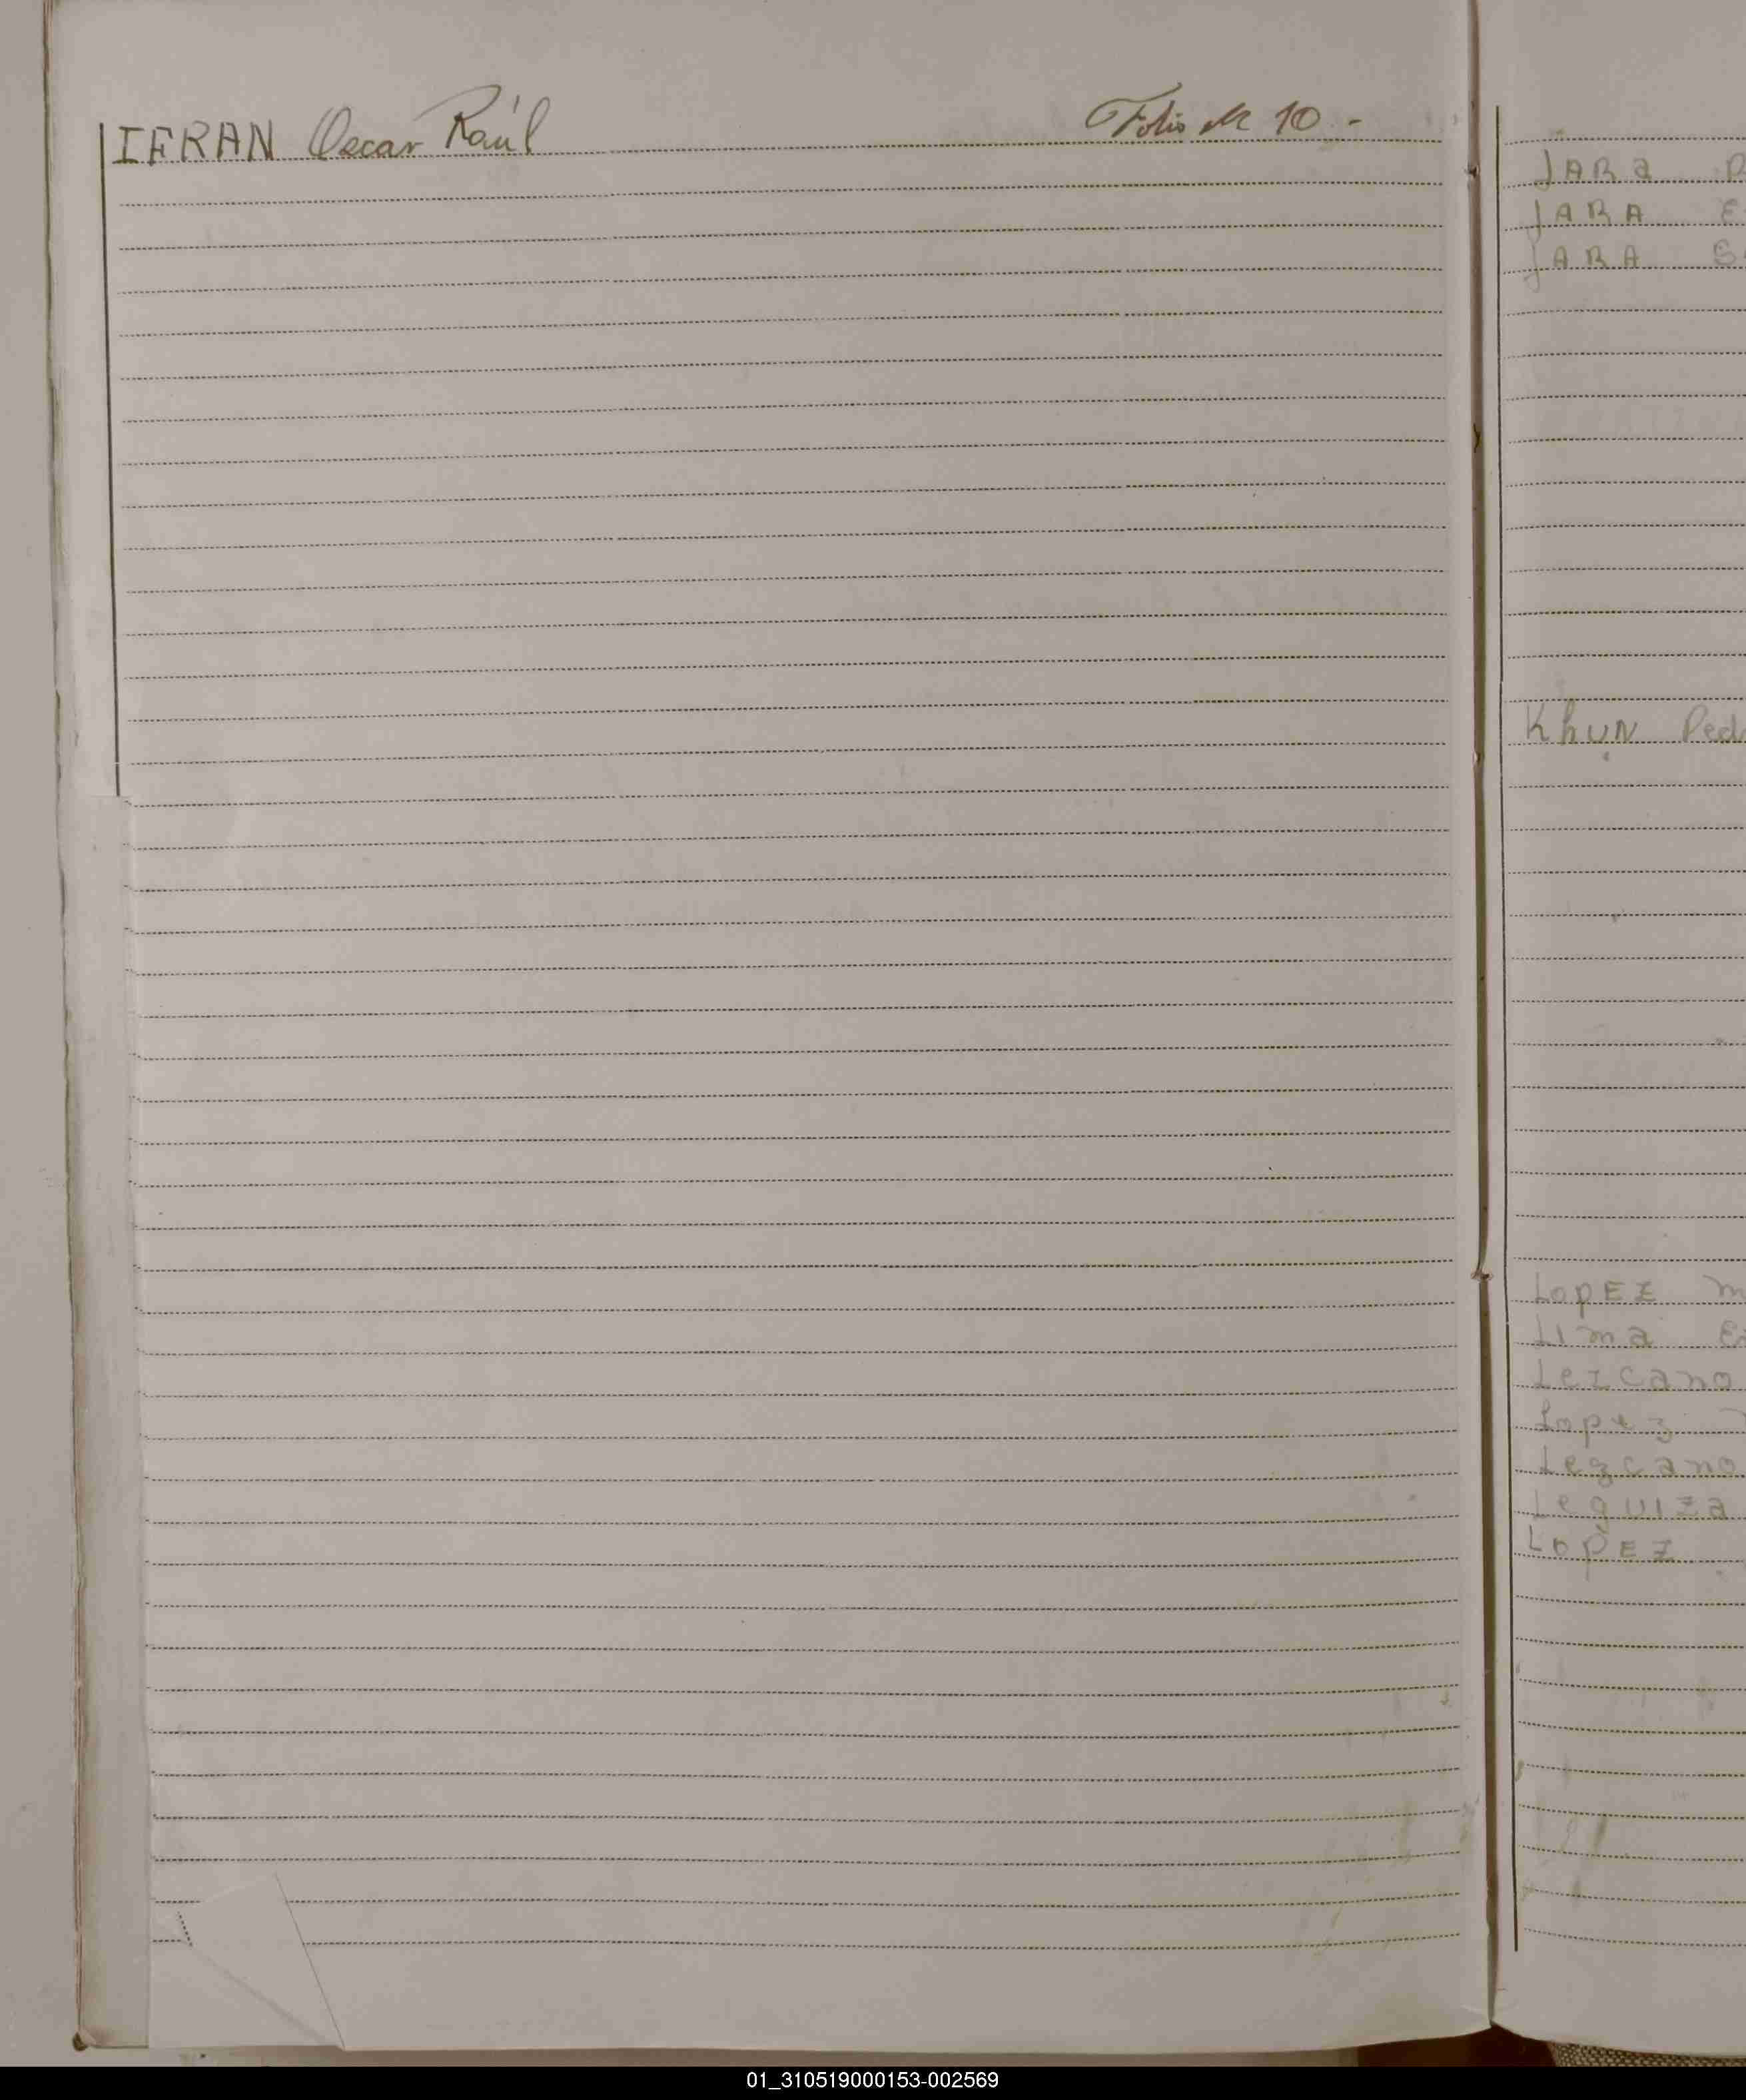 IFRAN Oscar Raúl Folio Nº 10.-
JARA
JARA
JARA
KhUN Ped
LopEZ
Lima
Lezcano
Lopez
Lezcano
Leguiza
LopEZ
01_310519000153-002569